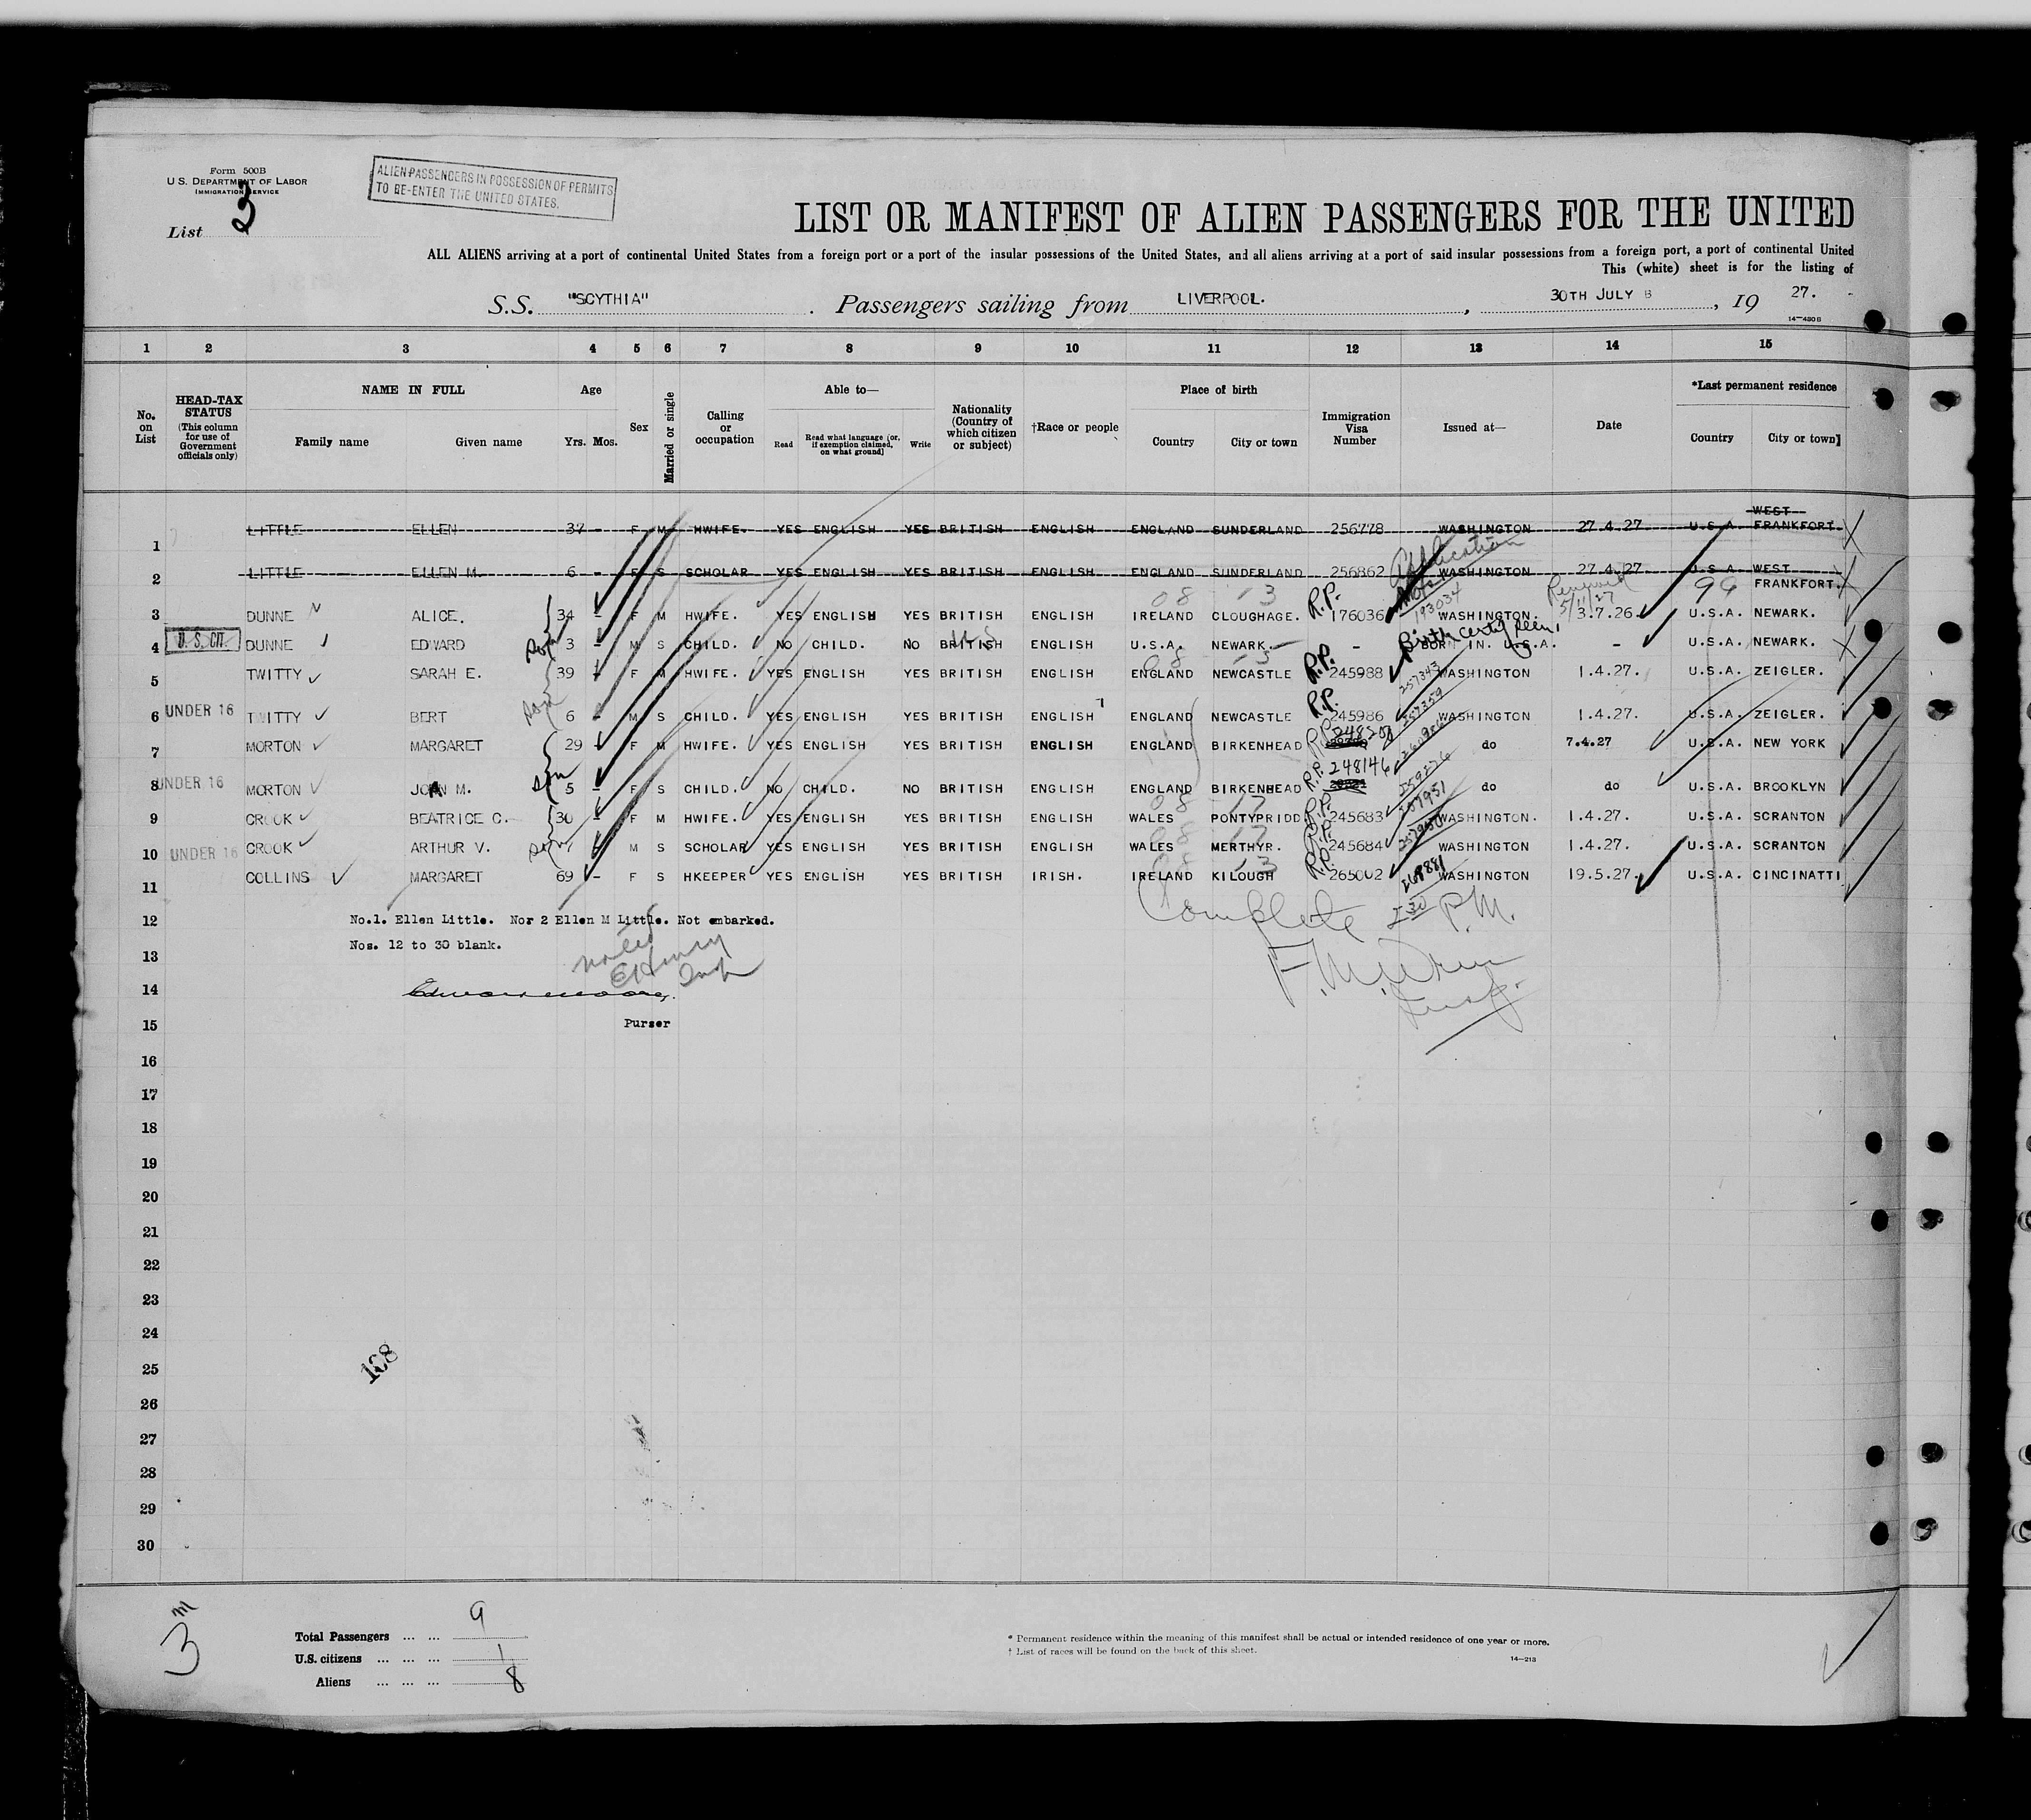 Form 500B
U.S. DEPARTMENT OF LABOR
IMMIGRATION SERVICE
List 3
ALIEN PASSENGERS IN POSSESSION OF PERMITS
TO RE-ENTER THE UNITED STATES.
LIST OR MANIFEST OF ALIEN PASSENGERS FOR THE UNITED
ALL ALIENS arriving at a port of continental United States from a foreign port or a part of the insular possessions of the United States, and all aliens arriving at a port of said insular possessions from a foreign port, a part of continental United
This (white) sheet is for the listing of
S.S. "SCYTHIA" . Passengers sailing from LIVERPOOL. , 30TH JULY , 19 27.
14—480B
1 2 3 4 5 6 7 8 9 10 11 12 13 14 15
No. on List
HEAD-TAX STATUS (This column for use of Government officials only)
NAME IN FULL
Family name Given name
Age
Yrs. Mos.
Sex
Married or single
Calling or occupation
Able to—
Read Read what language (or, if exemption claimed, on what ground] Write
Nationality (Country of which citizen or subject)
†Race or people
Place of birth
Country City or town
Immigration Visa Number
Issued at—
Date
*Last permanent residence
Country City or town]
1 LITTLE ELLEN 37 - F M HWIFE. YES ENGLISH YES BRITISH ENGLISH ENGLAND SUNDERLAND 256778 WASHINGTON 27.4.27 U.S.A. WEST FRANKFORT.
Application
2 LITTLE ELLEN M. 6 - F S SCHOLAR YES ENGLISH YES BRITISH ENGLISH ENGLAND SUNDERLAND 256862 WASHINGTON 27.4.27 U.S.A. WEST FRANKFORT.
08 13 193034 5/11/27 99
3 DUNNE ALICE. 34 - F M HWIFE. YES ENGLISH YES BRITISH ENGLISH IRELAND CLOUGHAGE. R.P. 176036 WASHINGTON. 3.7.26. U.S.A. NEWARK.
4 U.S. CIT. DUNNE EDWARD son 3 - M S CHILD. NO CHILD. NO BRITISH U S ENGLISH U.S.A. NEWARK. - Birth certif seen, BORN IN. U.S.A. - U.S.A. NEWARK.
5 TWITTY SARAH E. 39 - F M HWIFE. YES ENGLISH YES BRITISH ENGLISH ENGLAND NEWCASTLE R.P. 245988 257343 WASHINGTON 1.4.27. U.S.A. ZEIGLER.
6 UNDER 16 TWITTY BERT son 6 - M S CHILD. YES ENGLISH YES BRITISH ENGLISH ENGLAND NEWCASTLE R.P. 245986 257359 WASHINGTON 1.4.27. U.S.A. ZEIGLER.
7 MORTON MARGARET 29 - F M HWIFE. YES ENGLISH YES BRITISH ENGLISH ENGLAND BIRKENHEAD R.P. 248201 do 7.4.27 U.S.A. NEW YORK
8 UNDER 16 MORTON JOAN M. 5 - F S CHILD. NO CHILD. NO BRITISH ENGLISH ENGLAND BIRKENHEAD R.P. 248146 do do U.S.A. BROOKLYN
08 17
9 CROOK BEATRICE C. 30 - F M HWIFE. YES ENGLISH YES BRITISH ENGLISH WALES PONTYPRIDD R.P. 245683 257951 WASHINGTON. 1.4.27. U.S.A. SCRANTON
08 17
10 UNDER 16 CROOK ARTHUR V. son 7 - M S SCHOLAR YES ENGLISH YES BRITISH ENGLISH WALES MERTHYR. R.P. 245684 257950 WASHINGTON 1.4.27. U.S.A. SCRANTON
08 13
11 COLLINS MARGARET 69 - F S HKEEPER YES ENGLISH YES BRITISH IRISH. IRELAND KILOUGH R.P. 265002 WASHINGTON 19.5.27. U.S.A. CINCINATTI
12 No.1. Ellen Little. Nor 2 Ellen M Little. Not embarked.
Complete P.M.
Nos. 12 to 30 blank.
13
noted
Insp
14
Insp.
15 Purser
16
17
18
19
20
21
22
23
24
25
108
26
27
28
29
30
3
Total Passengers ... ... 9
U.S. citizens ... ... ... 1
Aliens ... ... ... 8
* Permanent residence within the meaning of this manifest shall be actual or intended residence of one year or more.
† List of races will be found on the back of this sheet.
14—213